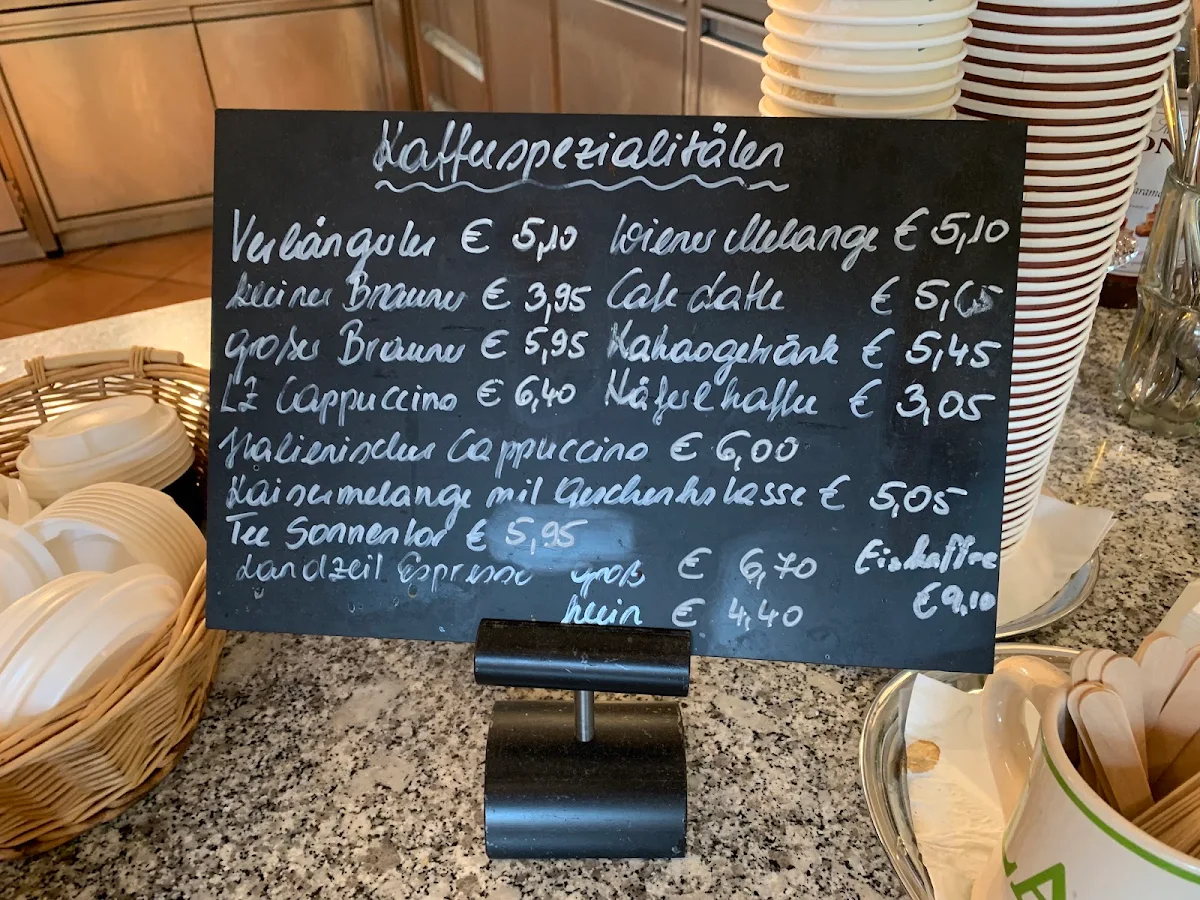 Kaffeespezialitäten
Verlängerter € 5,10 Wiener Melange € 5,10
kleiner Brauner € 3,95 Cafe Latte € 5,65
großer Brauner € 5,95 Kakaogetränk € 5,45
LZ Cappuccino € 6,40 Häferlkaffee € 3,05
Italienischer Cappuccino € 6,00
Kaisermelange mit Geschenkstasse € 5,05
Tee Sonnentor € 5,95
Landzeit Espresso groß € 6,70 Eiskaffee
klein € 4,40 € 9,10